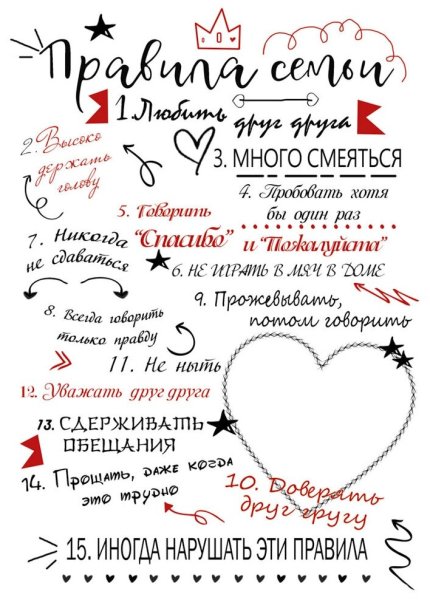 Правила семьи
1. Любить
друг друга
2. Высоко
держать
голову
3. МНОГО СМЕЯТЬСЯ
4. Пробовать хотя
бы один раз
5. Говорить
"Спасибо" и "Пожалуйста"
6. НЕ ИГРАТЬ В МЯЧ В ДОМЕ
7. Никогда
не сдаваться
8. Всегда говорить
только правду
9. Прожевывать,
потом говорить
10. Доверять
друг другу
11. Не ныть
12. Уважать друг друга
13. СДЕРЖИВАТЬ
ОБЕЩАНИЯ
14. Прощать, даже когда
это трудно
15. ИНОГДА НАРУШАТЬ ЭТИ ПРАВИЛА